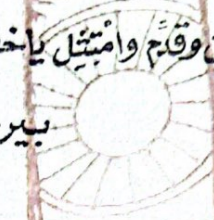 وقدم وامتثل ياخ
بير